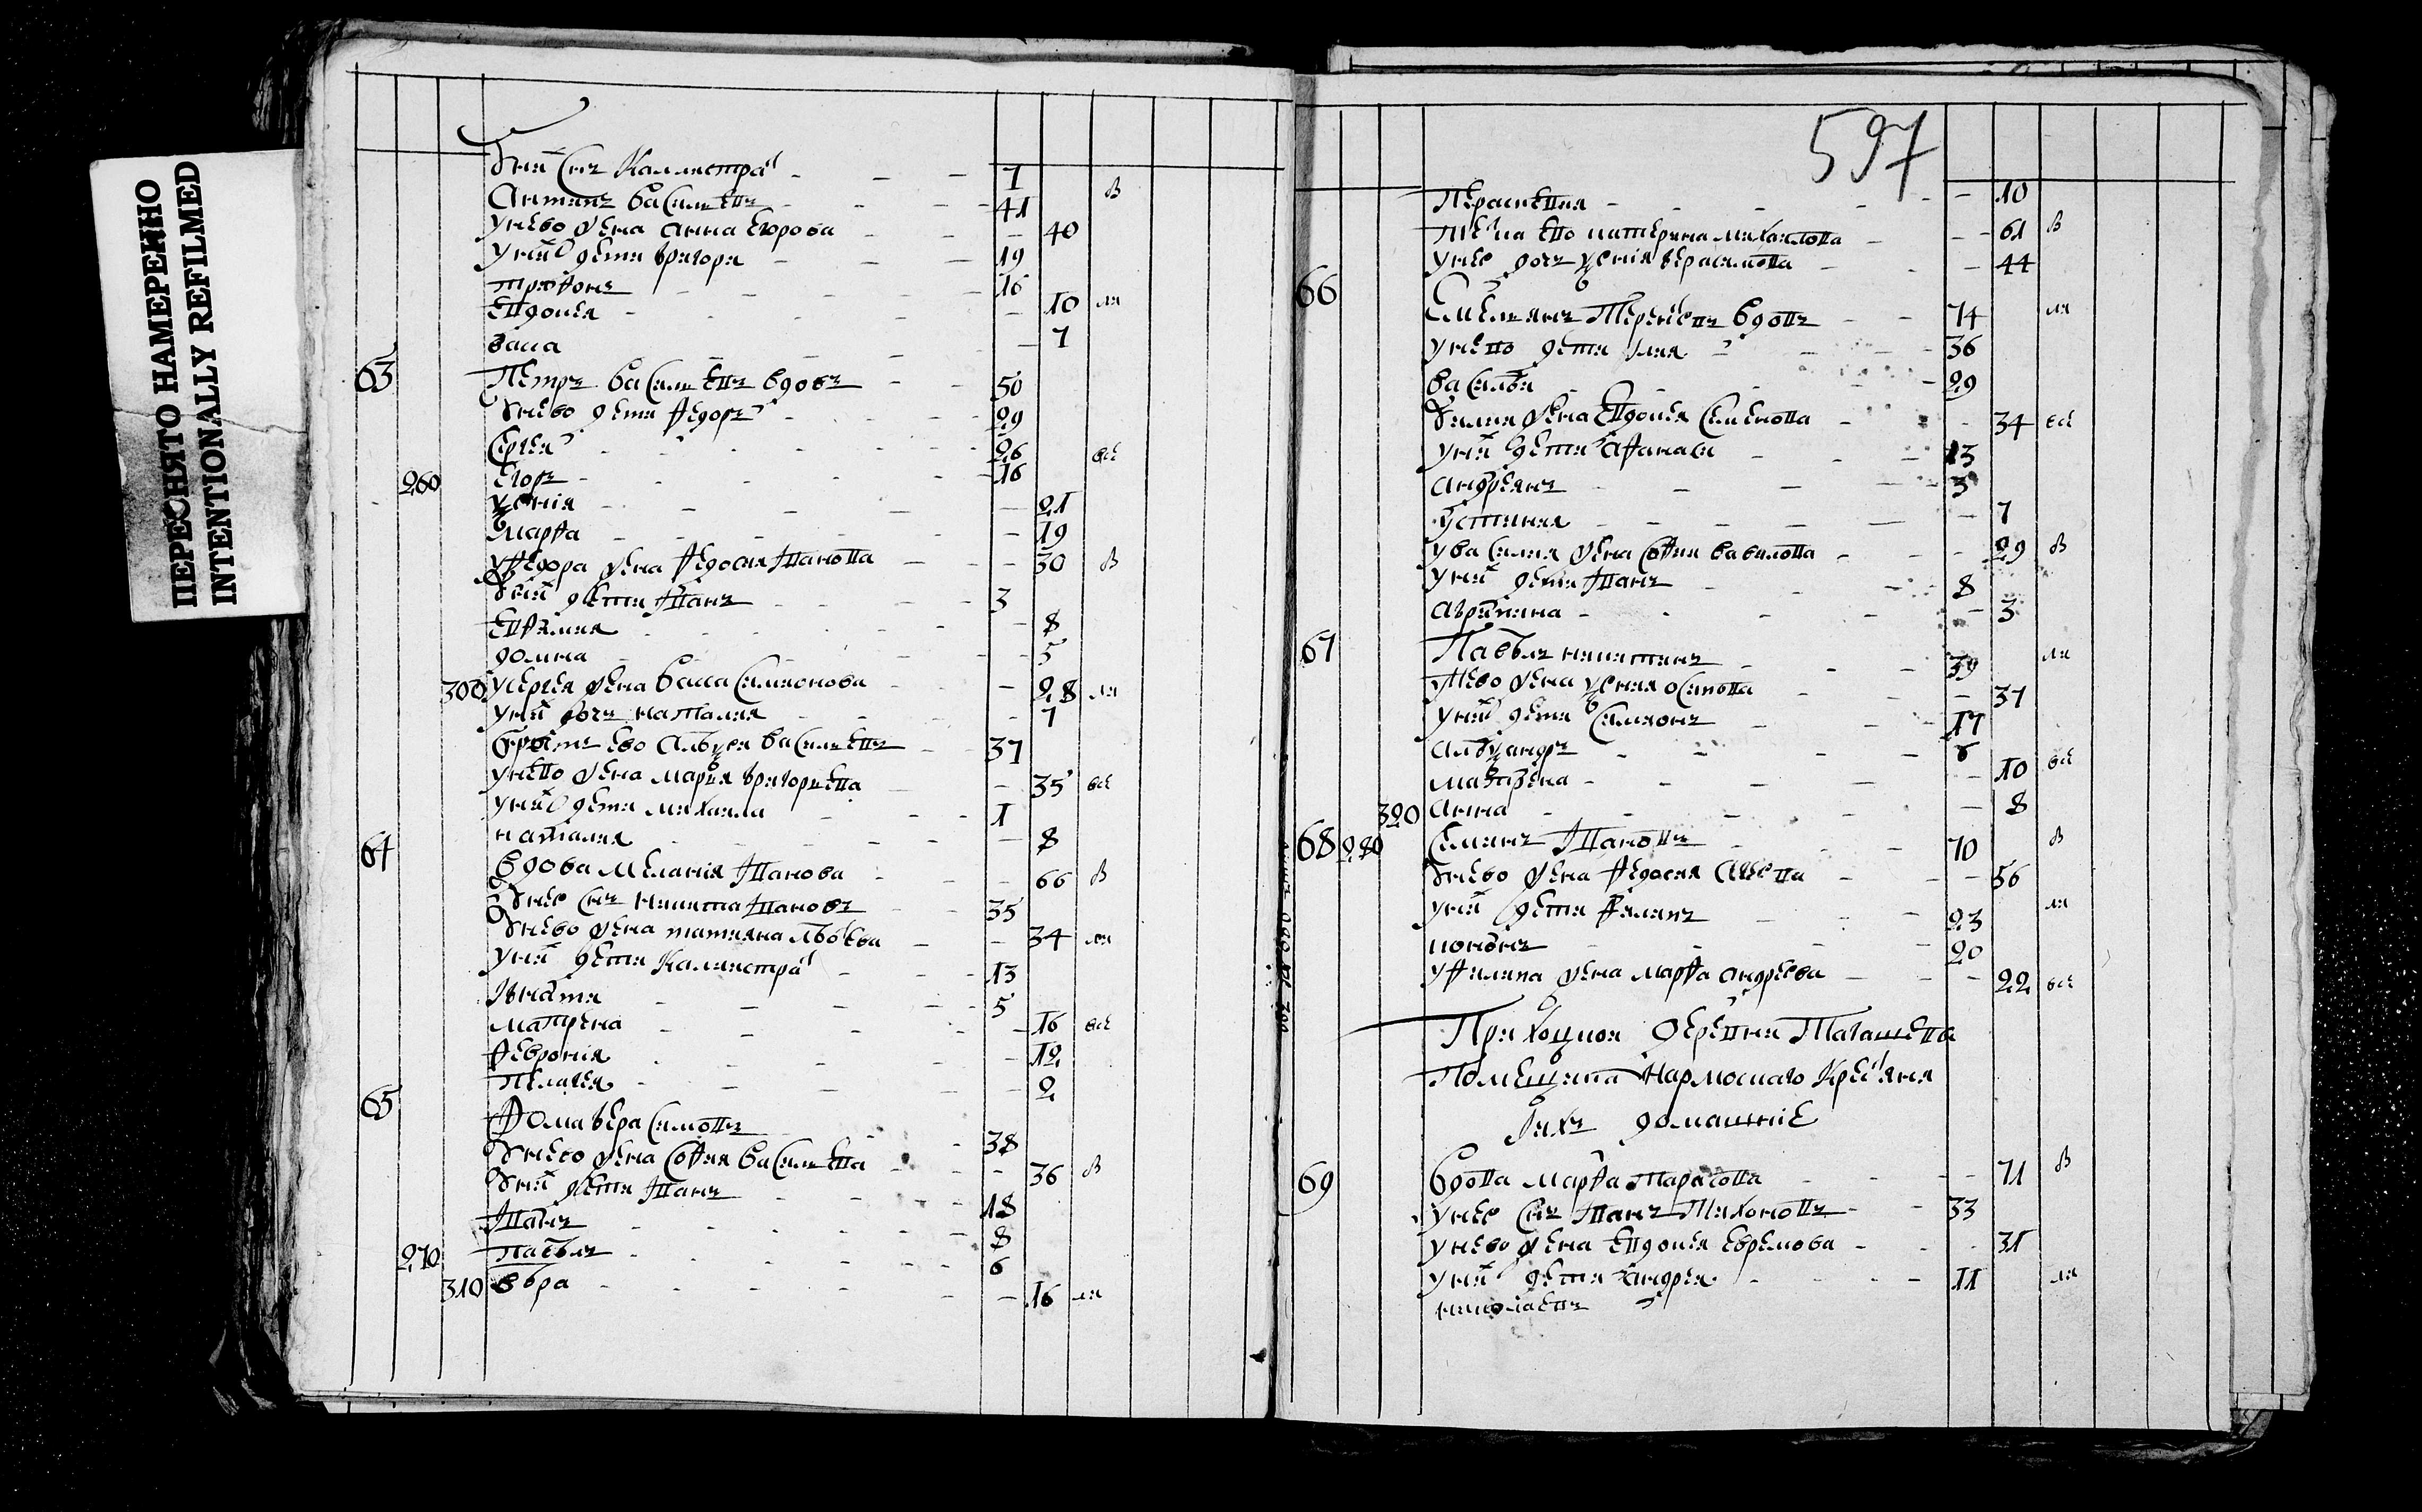 ПЕРЕСНЯТО НАМЕРЕННО
INTENTIONALLY REFILMED
У них сн҃ъ Каллистратъ 7
Антипъ Василевъ 41 в
У нево жена Анна Егорова 40
У них дети Григорѝ 19
Трифонъ 16
Евдокея 10 ли
Васса 7
63 Петръ Василевъ вдовъ 50
У нево дети Федоръ 29
Сергей 26 все
260 Егоръ 16
Ксения 21
Марфа 19
У Федора жена Федосия Иванова 30 в
У них дети Иванъ 3
Евфимия 8
Домна 5
300 У Сергея жена Васса Симионова 28 ли
У них дочь Наталия 7
Братъ ево Алексей Василевъ 37
У нево жена Мария Григорьева 35 все
У них дети Михаила 1
Наталия 8
64 Вдова Мелания Иванова 66 в
У нее сн҃ъ Никита Ивановъ 35
У нево жена Татияна Львова 34 ли
У них дети Каллистратъ 13
Игнатий 5
Матрена 16 все
Феврония 12
Пелагея 2
65 Фома Герасимовъ 38
У нево жена София Василева 36 в
У них дети Иванъ 18
Иванъ 8
270 Павелъ 6
310 Вера 16 ли
597
Перасковия 10
Теща ево Катерина Михаилова 61 в
У нее дочь Ксения Герасимова 44
66 Емельянъ Терентьевъ вдовъ 74 ли
У нево дети Илия 36
Василей 29
У Илии жена Евдокея Семенова 34 все
У них дети Афанаси 13
Андреянъ 3
Устиния 7
У Василия жена София Вавилова 29 в
У них дети Иванъ 8
Агрипина 3
67 Павелъ Никитинъ 39 ли
У нево жена Ксения Осипова 37
У них дети Симионъ 17
Александръ 6
Матрена 10 все
320 Анна 8
68 280 Семионъ Ивановъ 70 в
У нево жена Федосия 56
У них дети Филипъ 23 ли
Кононъ 20
У Филипа жена Марфа Андреева 22 все
Приходцкой деревни Тагашева
Помещика Нармоцкаго крестьяня
и ихъ домашние
69 Вдова Марфа Тарасова 71 в
У нее сн҃ъ Иванъ Тихоновъ 33
У нево жена Евдокея Ефремова 31
У них дети Андрей 11 ли